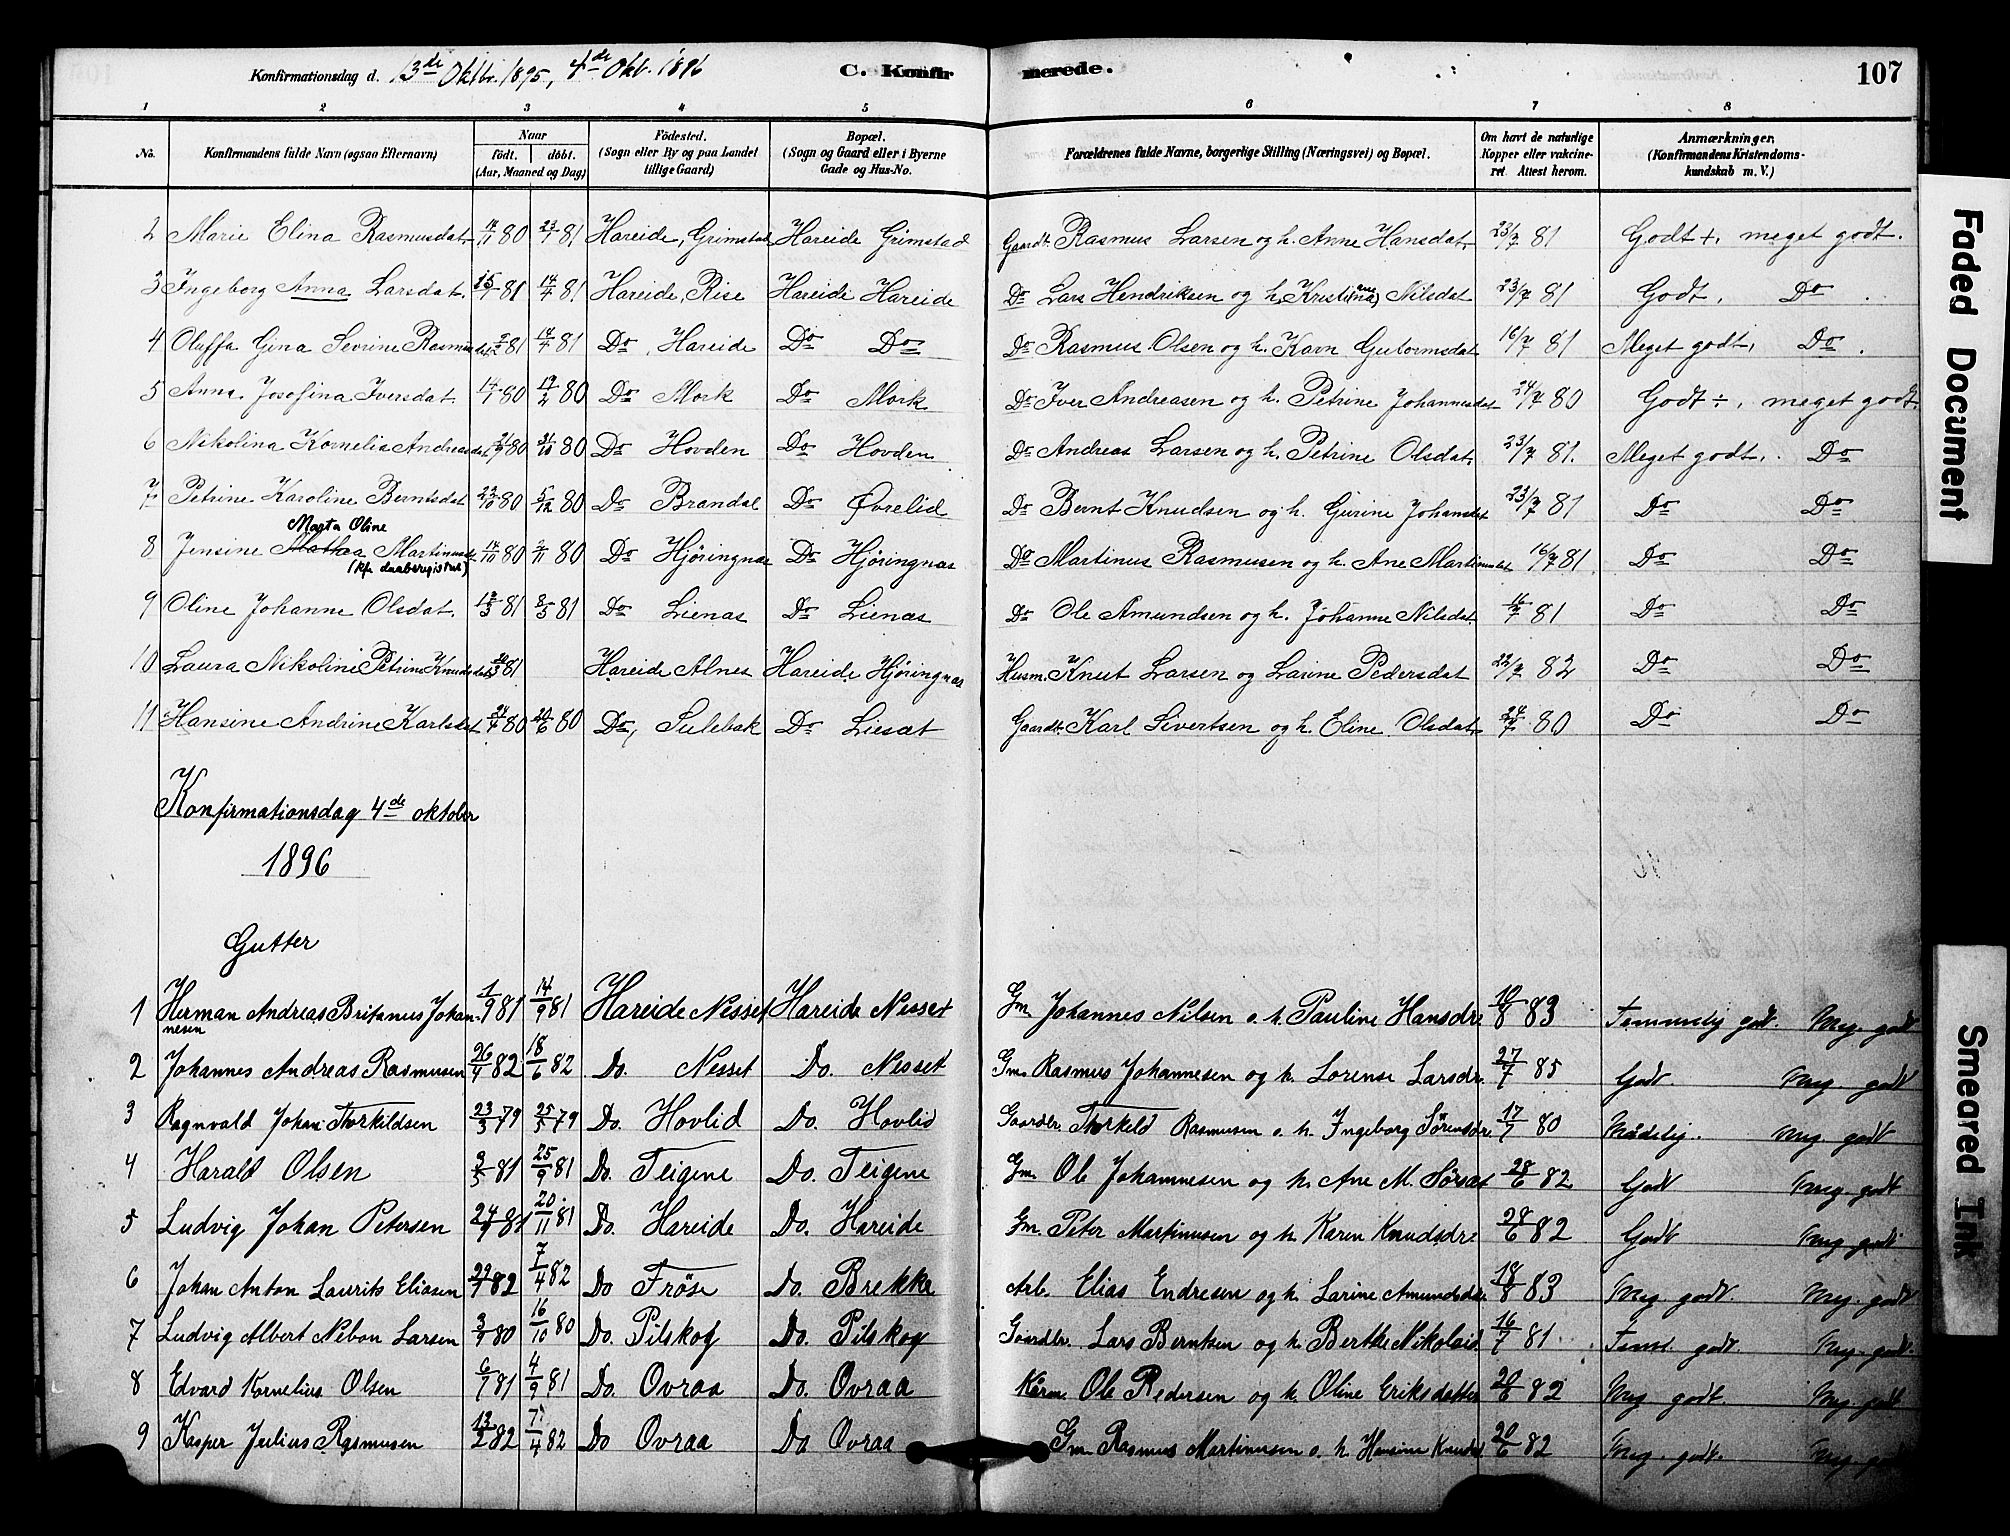 Konfirmationsdag d. 13de Oktbr. 1895, 4de Okb. 1896 C. Konfirmerede. 107
1 2 3 4 5 6 7 8
No. Konfirmandens fulde Navn (ogsaa Efternavn) Naar födt. döbt. (Aar, Maaned og Dag) Födested. (Sogn eller By og paa Landet tillige Gaard) Bopæl. (Sogn og Gaard eller i Byerne Gade og Hus-No. Forældrenes fulde Navne, borgerlige Stilling (Næringsvei) og Bopæl. Om havt de naturlige Kopper eller vakcineret. Attest herom. Anmærkninger. (Konfirmandens Kristendomskundskab m. V.)
2 Marie Elina Rasmusdat. 14/11 80 23/1 81 Hareide, Grimstad Hareide Grimstad Gaardr. Rasmus Larsen og h. Anne Hansdat. 23/7 81 Godt +, meget godt.
3 Ingeborg Anna Larsdat. 15/1 81 14/4 81 Hareide, Rise Hareide Hareide Do Lars Hendriksen og h. Kristi(ena)ane Nilsdat 23/7 81 Godt, Do.
4 Oluffa Gina Sevrine Rasmusdat. 81 17/4 81 Do, Hareide Do Do Do Rasmus Olsen og h. Karn Gutormsdat 16/7 81 Meget godt, Do.
5 Anna Josefina Iversdat. 14/1 80 80 Do Mork Do Mork Do Iver Andreasen og h. Petrine Johannesdat 24/7 80 Godt ÷, meget godt.
6 Nikolina Kornelia Andreasdat. 21/9 80 31/10 80 Do Hovden Do Hovden Do Andreas Larsen og h. Petrine Olsdat. 23/7 81. Meget godt, Do
7 Petrine Karoline Berntsdat 23/10 80 5/12 80 Do Brandal Do Øvrelid Do Bernt Knudsen og h. Gurine Johansdat 23/7 81 Do Do
Marta Oline
8 Jensine Mathea Martinusdr. 14/10 80 2/11 80 Do Hjöringnas Do Hjöringnas Do Martinus Rasmusen og h. Ane Martinusdat 16/7 81 Do Do
(kfr. daabsregistret)
9 Oline Johanne Olsdat. 81 8/5 81 Do Lienas Do Lienas Do Ole Amundsen og h. Johanne Nilsdat. 16/7 81 Do Do
10 Laura Nikoline Petrine Knudsdat. 81 Hareide Alnes Hareide Hjöringnas Husm. Knut Larsen og Larine Pedersdat 22/7 82 Do Do
11 Hansine Andrine Karlsdat 24/4 80 20/6 80 Do, Sulebak Do Liesæt Gaardr. Karl Sivertsen og h. Eline Olsdat. 24/7 80 Do Do
Konfirmationsdag 4de oktober
1896
Gutter
1 Herman Andreas Britanus Johannesen 1/9 81 14/9 81 Hareide Nesset Hareide Nesset Gm. Johannes Nilsen o. h. Pauline Hansdr. 10/8 83 Temmelig godt. Meg. godt
2 Johannes Andreas Rasmusen 26/4 82 18/6 82 Do. Nesset Do. Nesset Gm. Rasmus Johannesen og h. Lorense Larsdr. 27/7 85 Godt. Meg. godt
3 Ragnvald Johan Thorkildsen 23/3 79 25/5 79 Do. Hovlid Do. Hovlid Gaardbr. Thorkeld Rasmusen o. h. Ingeborg Sörensdr. 17/7 80 Mådelig. Meg. godt
4 Harald Olsen 81 25/9 81 Do. Teigene Do. Teigene Gm. Ole Johannesen og h. Ane M. 28/6 82 Godt Meg. godt
5 Ludvig Johan Petersen 24/9 81 20/11 81 Do. Hareide Do. Hareide Gm. Peter Martinusen og h. Karen Knudsdr. 28/6 82 Godt Meg. godt
6 Johan Anton Laurits Eliasen 29/1 82 7/4 82 Do Fröse Do. Brekke Arb. Elias Endresen og h. Larine Amundsdr. 18/8 83 Meg. godt. Meg. godt
7 Ludvig Albert Nebon Larsen 3/9 80 16/10 80 Do. Pilskog Do. Pilskog Gaardbr. Lars Berntsen og h. Berthe Nikolaid. 16/7 81 Tem. godt. Meg. godt.
8 Edvard Kornelius Olsen 6/7 81 4/9 81 Do. Ovraa Do. Ovraa Ole Pedersen og h. Oline Eriksdatter 82 Meg. godt. Meg. godt
9 Kasper Julius Rasmusen 13/2 82 7/4 82 Do Ovraa Do Ovraa Gm. Rasmus Martinusen o. h. Hansine Knudsd. 20/6 82 Meg. godt. Meg. godt
Faded Document
Smeared Ink